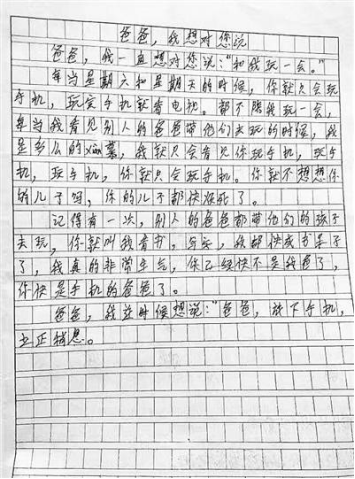 爸爸，我想对您说
爸爸，我一直想对您说："和我玩一会。"
每当星期六和星期天的时候，你就只会玩
手机，玩完手机就看电视。都不陪我玩一会，
每当我看见别人的爸爸带他们去玩的时候，我
是多么的xiàn慕，我就只会看见你玩手机，玩手
机，玩手机，你就只会玩手机。你就不想想你
的儿子吗，你的儿子都快烦死了。
记得有一次，别人的爸爸都带他们的孩子
去玩，你就叫我看书、写字，我都快成书呆子
了，我真的非常生气，你已经快不是我爸了，
你快是手机的爸爸了。
爸爸，我这时候想说："爸爸，放下手机，
立正稍息。